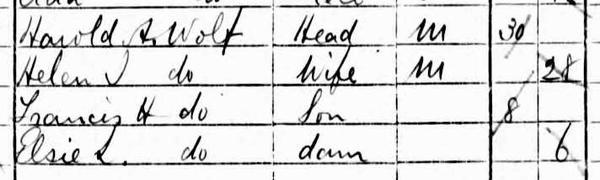 Harold A. Wolf Head M 30
Helen I do Wife M 28
Francis H do Son 8
Elsie L. do daur 6